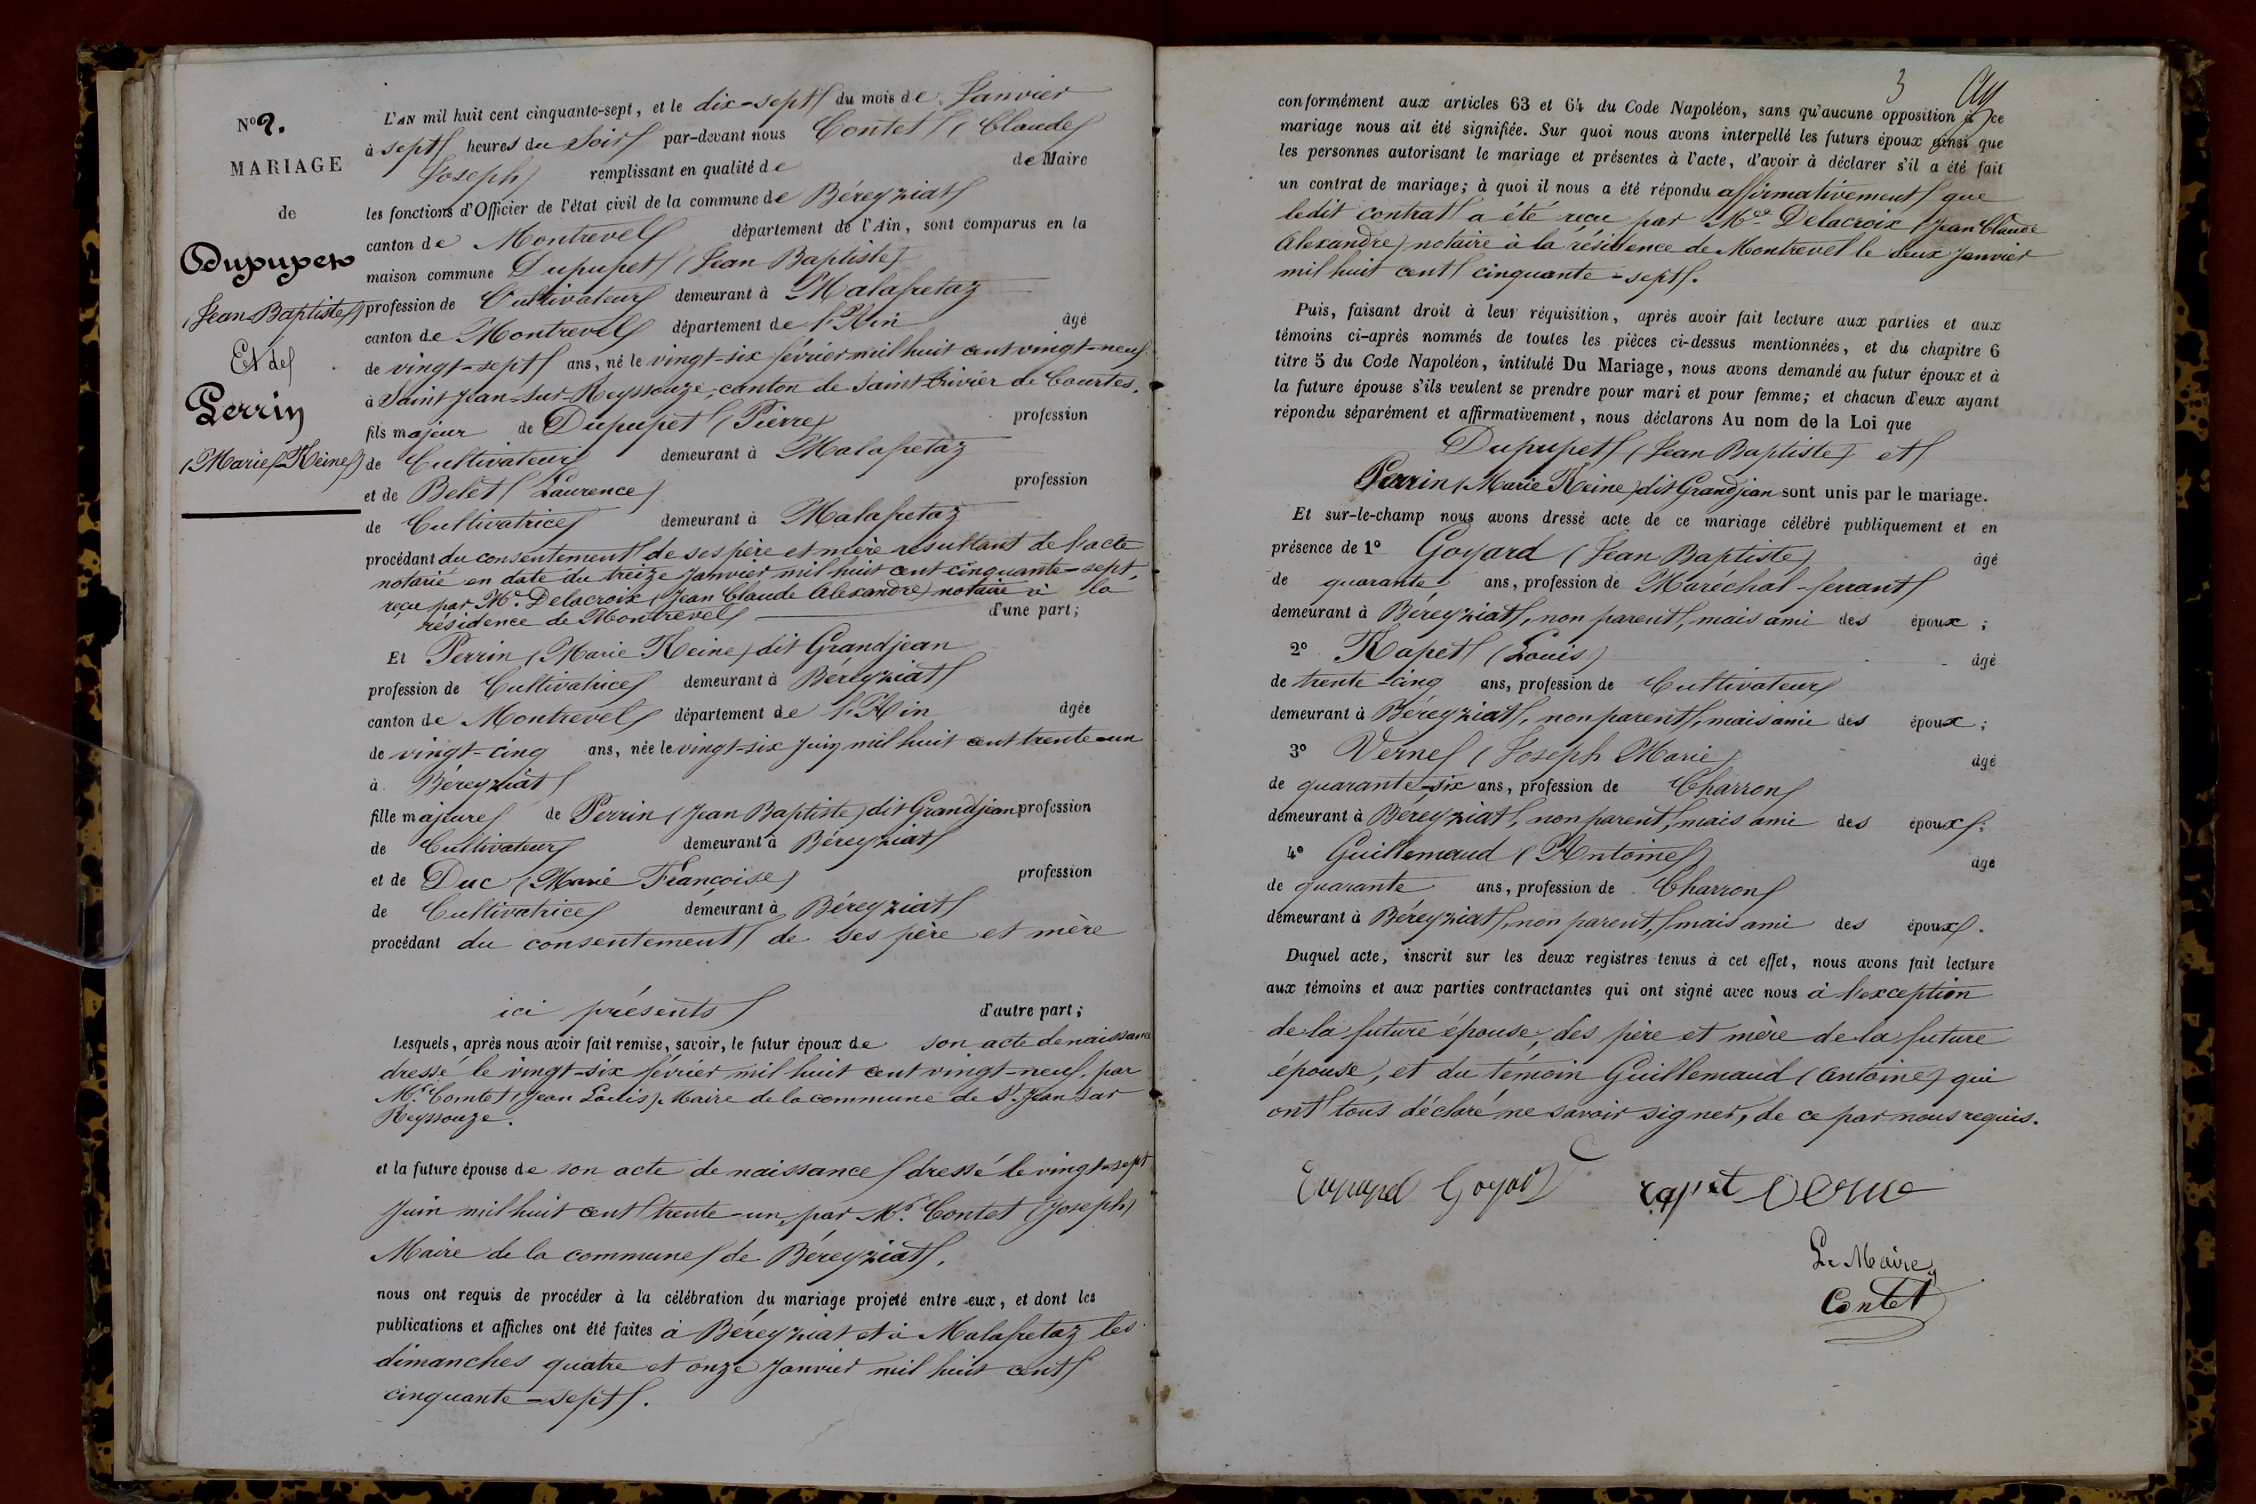 N° 2.
MARIAGE
de
Dupupet
(Jean Baptiste)
Et de
Perrin
(Marie Reine)
L'AN mil huit cent cinquante-sept, et le dix-sept du mois de Janvier
à sept heures du soir par-devant nous Contet (Claude
Joseph) remplissant en qualité de de Maire
les fonctions d'Officier de l'état civil de la commune de Béreyziat
canton de Montrevel département de l'Ain, sont comparus en la
maison commune Dupupet (Jean Baptiste)
profession de Cultivateur demeurant à Malafretaz
canton de Montrevel département de l'Ain âgé
de vingt-sept ans, né le vingt-six février mil huit cent vingt-neuf
à Saint Jean-sur-Reyssouze, canton de Saint Trivier de Courtes,
fils majeur de Dupupet (Pierre) profession
de Cultivateur demeurant à Malafretaz
et de Belet Laurence) profession
de Cultivatrice demeurant à Malafretaz
procédant du consentement de ses père et mère résultant de l'acte
notarié en date du treize Janvier mil huit cent cinquante-sept,
reçu par Me. Delacroix (Jean Claude Alexandre) notaire à la
résidence de Montrevel d'une part;
Et Perrin (Marie Reine) dit Grandjean
profession de Cultivatrice demeurant à Béreyziat
canton de Montrevel département de l'Ain âgée
de vingt-cinq ans, née le vingt-six Juin mil huit cent trente-un
à Béreyziat
fille majeure de Perrin (Jean Baptiste) dit Grandjean profession
de Cultivateur demeurant à Béreyziat
et de Duc (Marie Françoise) profession
de Cultivatrice demeurant à Béreyziat
procédant du consentement de ses père et mère
ici présents d'autre part;
Lesquels, après nous avoir fait remise, savoir, le futur époux de son acte de naissance
dressé le vingt-six février mil huit cent vingt-neuf, par
Mr. Comtet (Jean Louis) Maire de la commune de St. Jean sur
Reyssouze.
et la future épouse de son acte de naissance dressé le vingt-sept
Juin mil huit cent trente-un, par Mr. Contet (Joseph)
Maire de la commune de Béreyziat.
nous ont requis de procéder à la célébration du mariage projeté entre eux, et dont les
publications et affiches ont été faites à Béreyziat et à Malafretaz les
dimanches quatre et onze Janvier mil huit cent
cinquante-sept.
3
conformément aux articles 63 et 64 du Code Napoléon, sans qu'aucune opposition à ce
mariage nous ait été signifiée. Sur quoi nous avons interpellé les futurs époux ainsi que
les personnes autorisant le mariage et présentes à l'acte, d'avoir à déclarer s'il a été fait
un contrat de mariage; à quoi il nous a été répondu affirmativement que
ledit contrat a été reçu par Me Delacroix (Jean Claude
Alexandre) notaire à la résidence de Montrevel le deux Janvier
mil huit cent cinquante-sept.
Puis, faisant droit à leur réquisition, après avoir fait lecture aux parties et aux
témoins ci-après nommés de toutes les pièces ci-dessus mentionnées, et du chapitre 6
titre 5 du Code Napoléon, intitulé Du Mariage, nous avons demandé au futur époux et à
la future épouse s'ils veulent se prendre pour mari et pour femme; et chacun d'eux ayant
répondu séparément et affirmativement, nous déclarons Au nom de la Loi que
Dupupet (Jean Baptiste) et
Perrin (Marie Reine) dit Grandjean sont unis par le mariage.
Et sur-le-champ nous avons dressé acte de ce mariage célébré publiquement et en
présence de 1° Goyard (Jean Baptiste) âgé
de quarante ans, profession de Maréchal-ferrant
demeurant à Béreyziat, non parent, mais ami des époux;
2° Rapet (Louis) âgé
de trente cinq ans, profession de Cultivateur
demeurant à Béreyziat, non parent, mais ami des époux;
3° Verne (Joseph Marie) âgé
de quarante-six ans, profession de Charron
demeurant à Béreyziat, non parent, mais ami des époux;
4° Guillemaud (Antoine) âgé
de quarante ans, profession de Charron
demeurant à Béreyziat, non parent, mais ami des époux.
Duquel acte, inscrit sur les deux registres tenus à cet effet, nous avons fait lecture
aux témoins et aux parties contractantes qui ont signé avec nous à l'exception
de la future épouse, des père et mère de la future
épouse, et du témoin Guillemaud (Antoine) qui
ont tous déclaré ne savoir signer, de ce par nous requis.
Goyard rapet verne
Le Maire
Contet